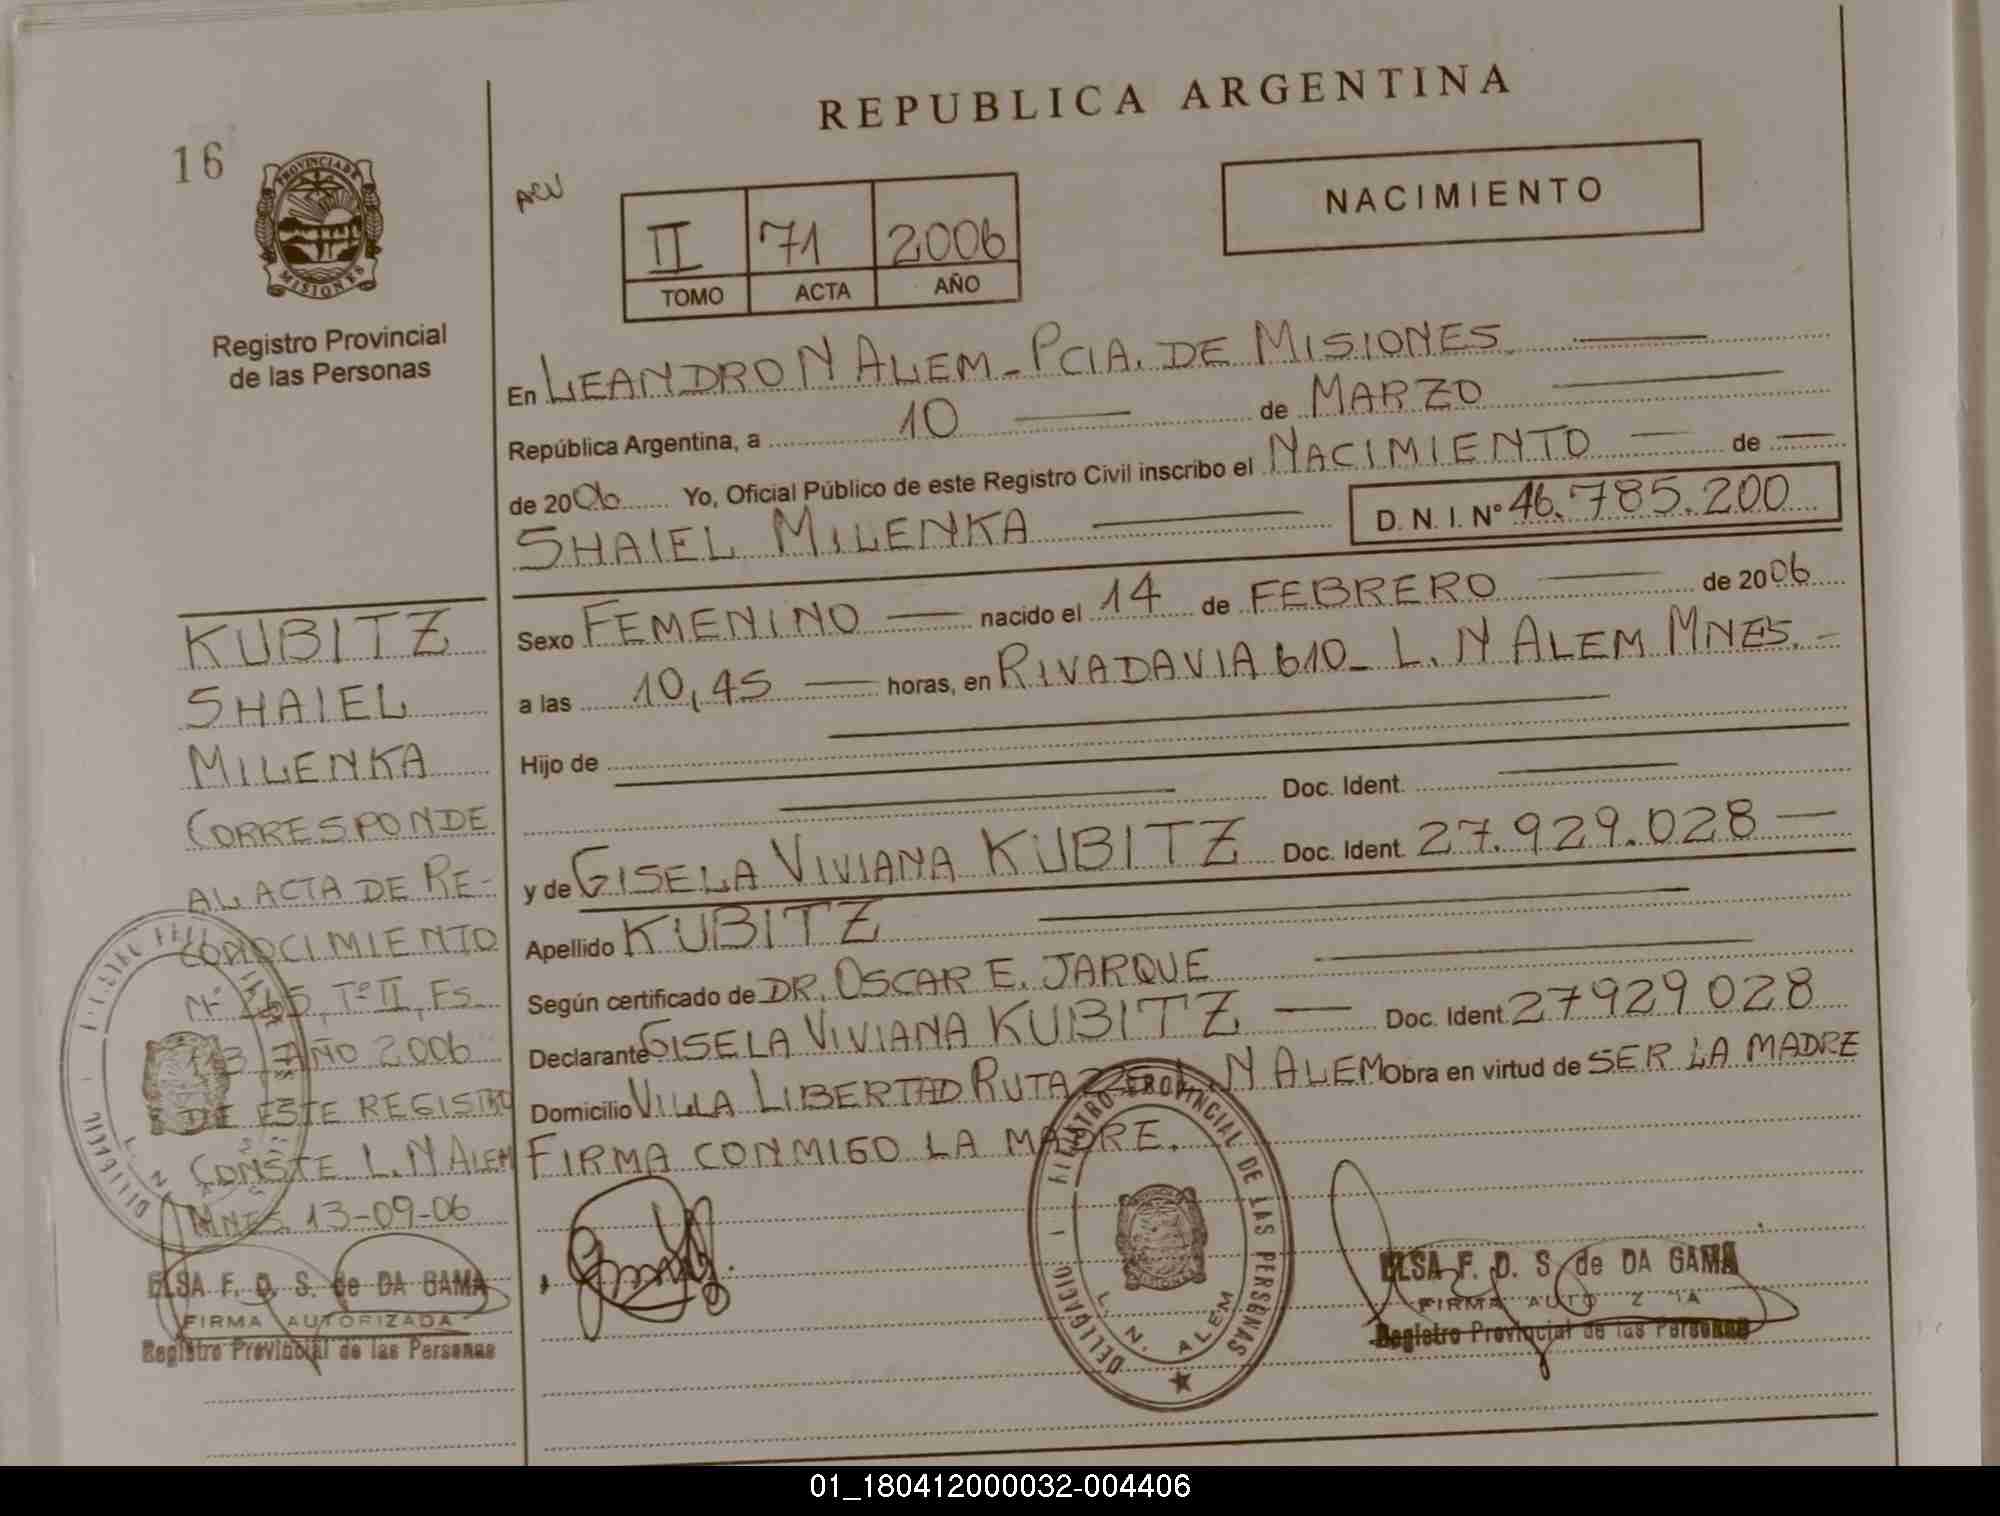 REPUBLICA ARGENTINA
16
PROVINCIA DE
MISIONES
Registro Provincial
de las Personas
ACU
II 71 2006
TOMO ACTA AÑO
NACIMIENTO
En LEANDRO N ALEM - PCIA. DE MISIONES.
República Argentina, a 10 de MARZO
de 2006 Yo, Oficial Público de este Registro Civil inscribo el NACIMIENTO de
SHAIEL MILENKA D. N. I. Nº 46.785.200
Sexo FEMENINO nacido el 14 de FEBRERO de 2006
a las 10,45 horas, en RIVADAVIA 610 - L. N ALEM MNES. -
Hijo de
Doc. Ident.
y de GISELA VIVIANA KUBITZ Doc. Ident. 27.929.028
Apellido KUBITZ
Según certificado de DR. OSCAR E. JARQUE
Declarante GISELA VIVIANA KUBITZ Doc. Ident. 27929028
Domicilio VILLA LIBERTAD RUTA L. N ALEM Obra en virtud de SER LA MADRE
FIRMA CONMIGO LA MADRE.
KUBITZ
SHAIEL
MILENKA
CORRESPONDE
AL ACTA DE RE-
CONOCIMIENTO
Nº 265, Tº II, Fs
AÑO 2006
DE ESTE REGISTRO
CONSTE L. N ALEM
MNES. 13-09-06
ELSA F. D. S. de DA GAMA
FIRMA AUTORIZADA
Registro Provincial de las Personas
PROVINCIAL DE LAS PERSONAS
L. N. ALEM
ELSA F. D. S. de DA GAMA
FIRMA
Registro Provincial de las Personas
01_180412000032-004406